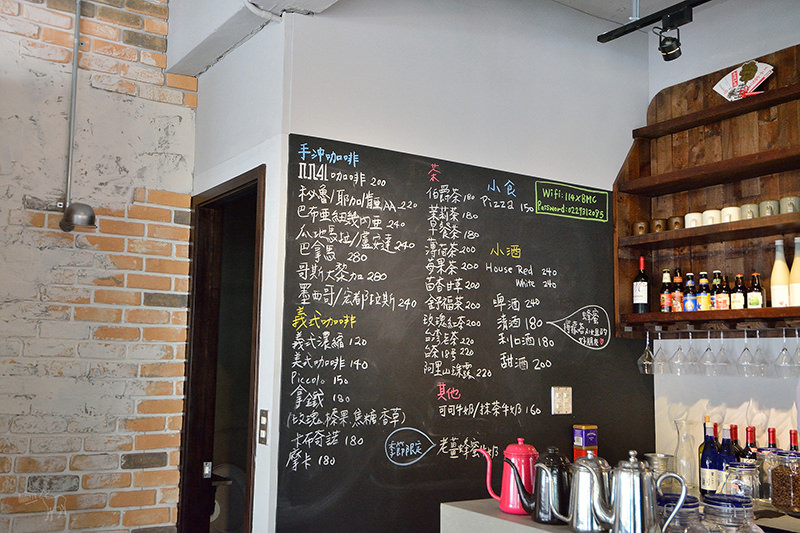 手沖咖啡
咖啡 200
秘魯/耶加/肯亞AA 220
巴布亞紐幾內亞 240
瓜地馬拉/盧安達 240
巴拿馬 280
哥斯大黎加 280
墨西哥/宏都拉斯 240
義式咖啡
義式濃縮 120
美式咖啡 140
Piccolo 150
拿鐵 180
(玫瑰、榛果、焦糖、香草)
卡布奇諾 180
摩卡 180
茶
伯爵茶 180
茉莉茶 180
早餐茶 180
薄荷茶 200
莓果茶 200
茴香甘草 200
舒福茶 200
玫瑰紅茶 200
台灣老茶 220
台茶18号 220
阿里山珠露 220
其他
可可牛奶/抹茶牛奶 160
季節限定
老薑蜂蜜牛奶
小食
Pizza 150
Wifi: 114x BMC
Password: 0229312085
小酒
House Red 240
White 240
啤酒 240
清酒 180
利口酒 180
甜酒 200
蜂蜜